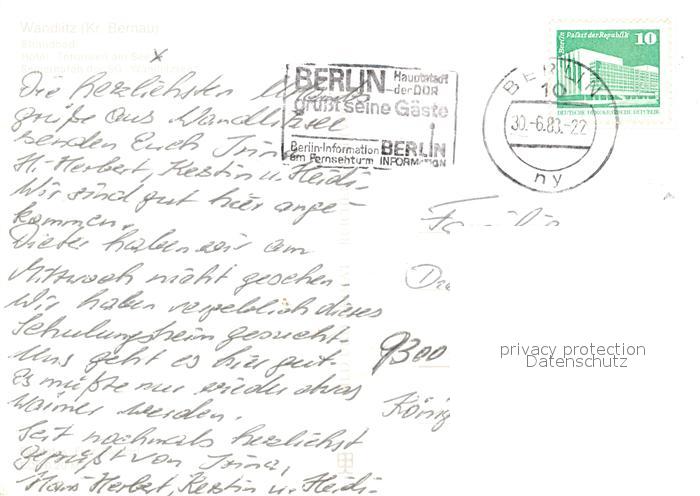 Wandlitz (Kr. Bernau)
Strandbad
Hotel
Die herzlichsten
grüße aus Wandlitzsee
senden Euch Irina,
H.-Herbert, Kerstin u. Heidi.
Wir sind gut hier ange-
kommen.
Dieter haben wir am
Mittwoch nicht gesehen.
Wir haben vergeblich dieses
Schulungsheim gesucht.
Uns geht es hier gut.
Es müßte nur wieder etwas
wärmer werden.
Seit nochmals herzlichst
gegrüßt von Irina,
Hans Herbert, Kerstin u. Heidi.
BERLIN Hauptstadt
der DDR
grüßt seine Gäste
Berlin-Information BERLIN
am Fernsehturm INFORMATION
BERLIN
10
30.-6.80.-22
ny
Berlin, Palast der Republik 10
DEUTSCHE DEMOKRATISCHE REPUBLIK
Familie
9300
privacy protection
Datenschutz